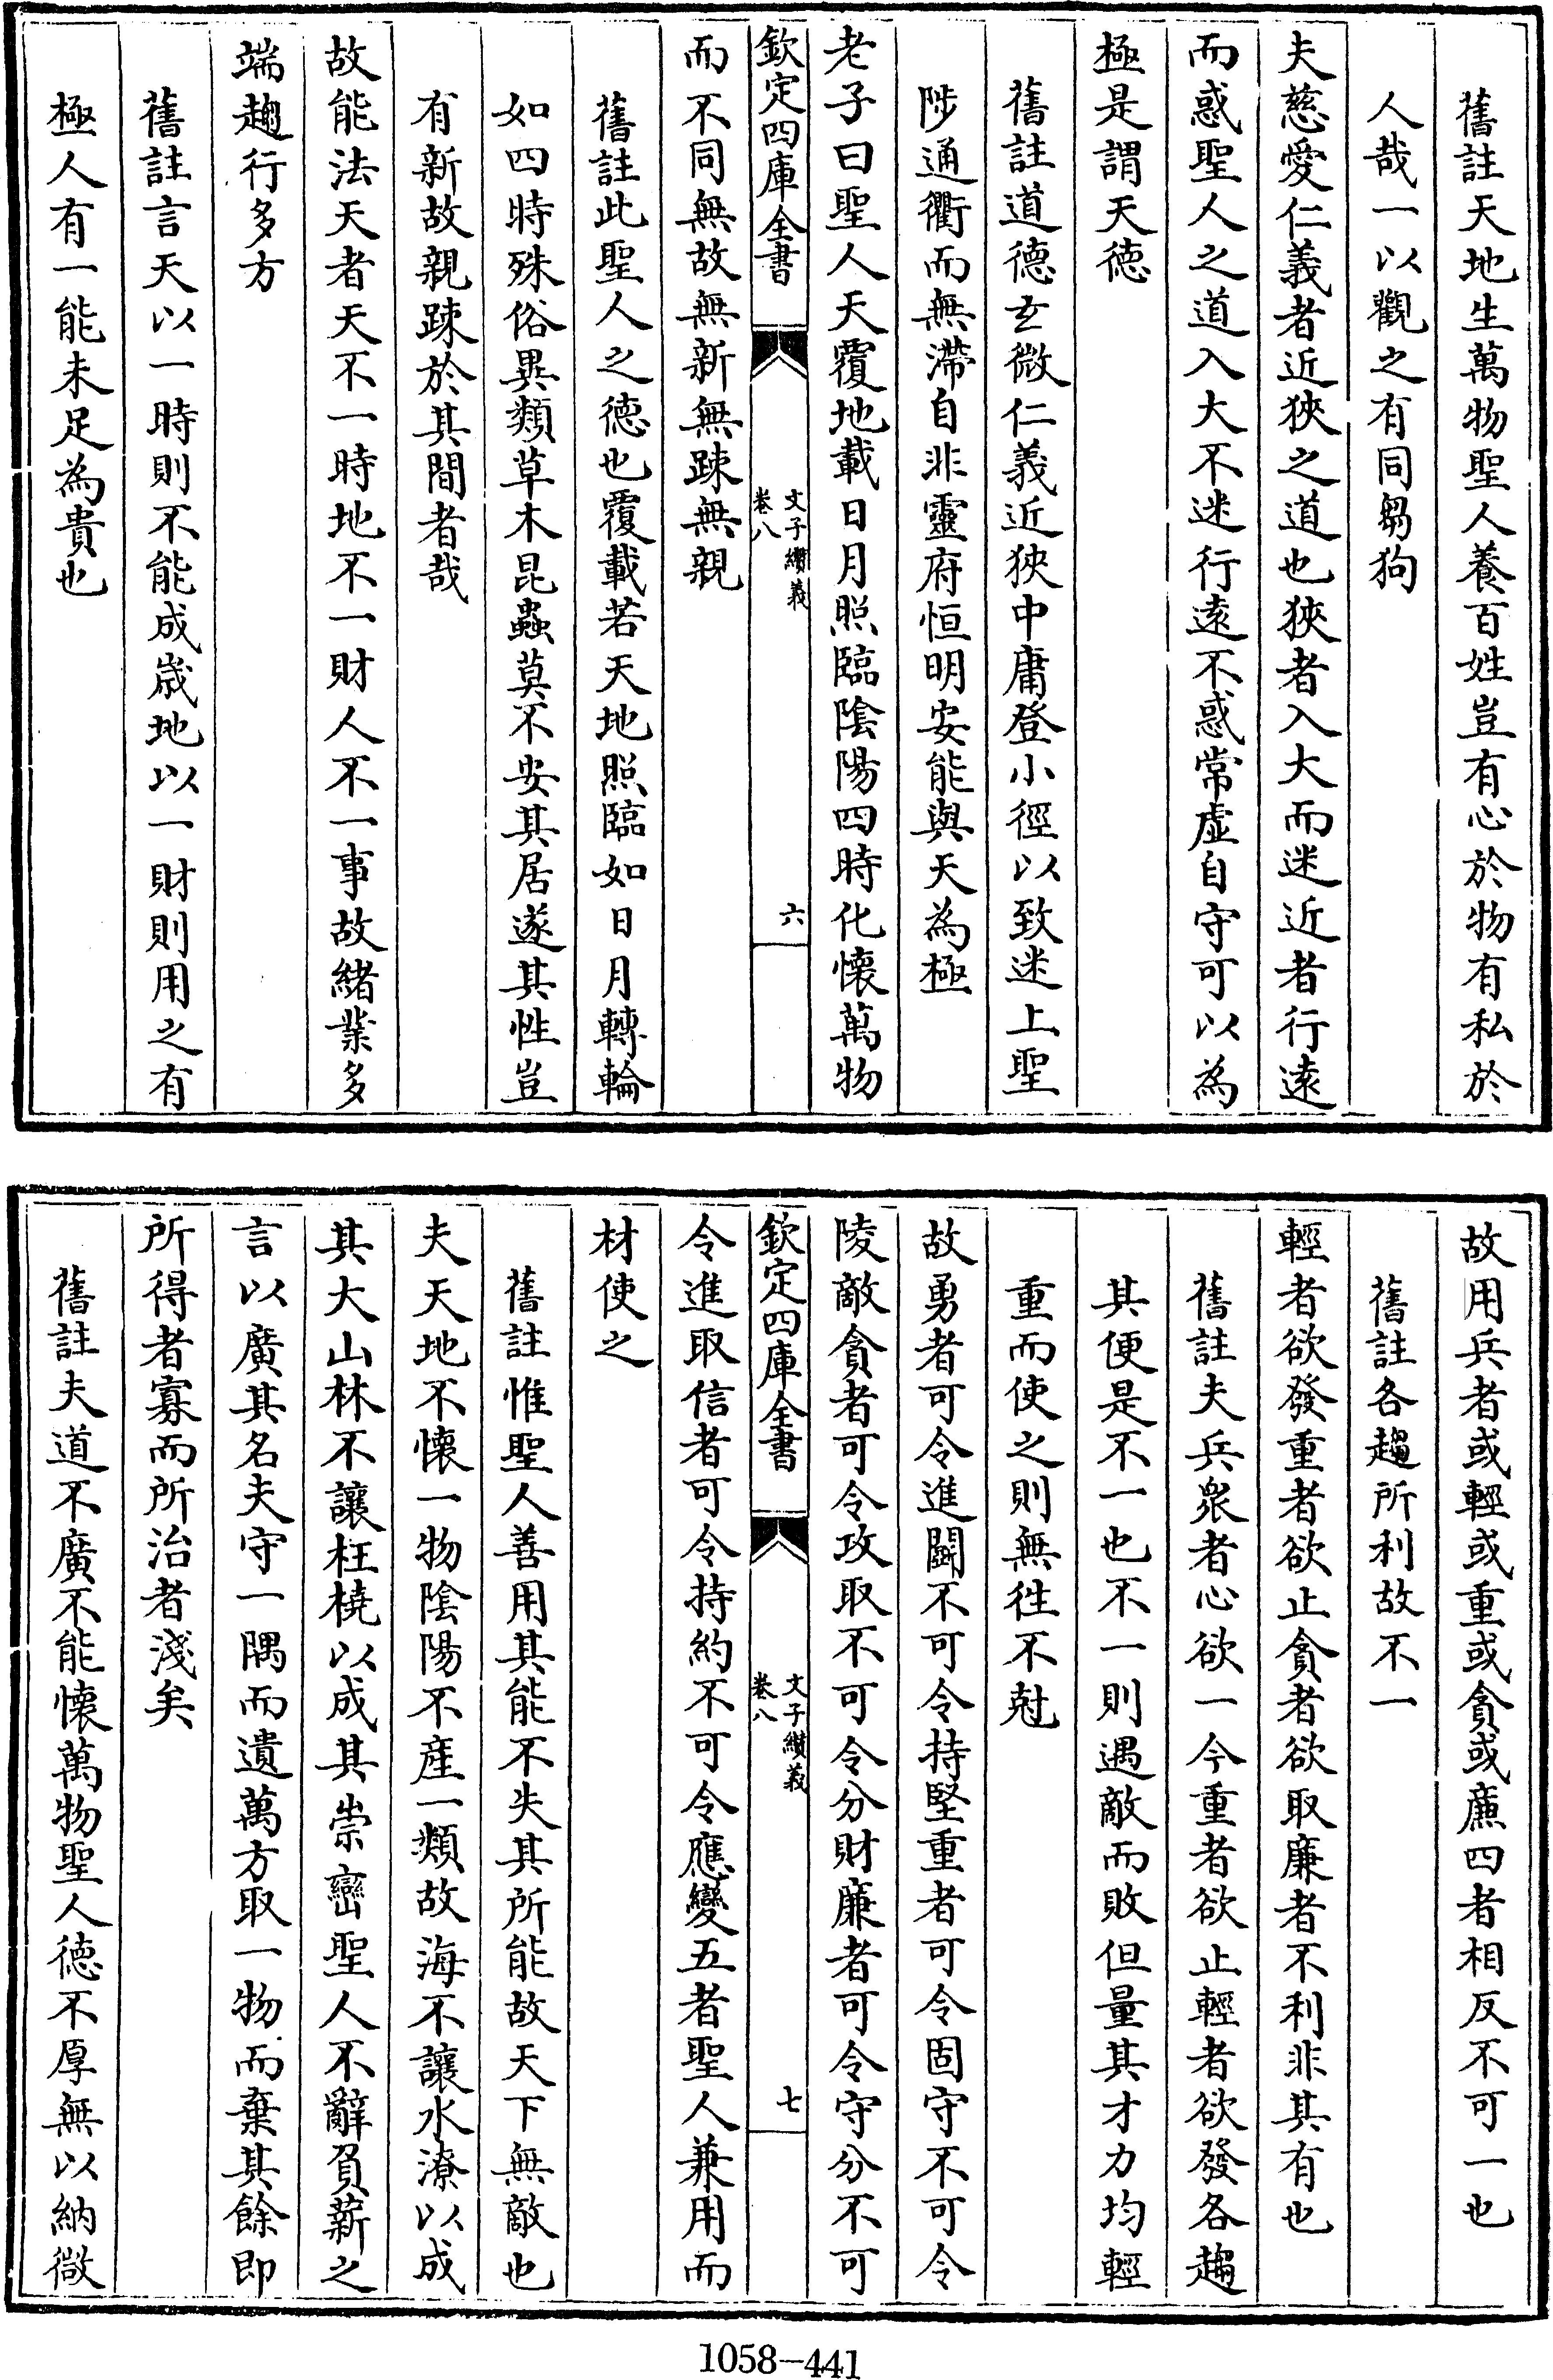 舊註天地生萬物聖人養百姓豈有心於物有私於
人哉一以觀之有同芻狗
夫慈愛仁義者近狹之道也狹者入大而迷近者行逺
而惑聖人之道入大不迷行逺不惑常虚自守可以為
極是謂天徳
舊註道徳玄微仁義近狹中庸登小徑以致迷上聖
陟通衢而無滯自非靈府恒明安能與天為極
老子曰聖人天覆地載日月照臨隂陽四時化懐萬物
欽定四庫全書
文子纉義
卷八
六
而不同無故無新無疎無親
舊註此聖人之徳也覆載若天地照臨如日月轉輪
如四時殊俗異類草木昆蟲莫不安其居遂其性豈
有新故親疎於其間者哉
故能法天者天不一時地不一財人不一事故緒業多
端趨行多方
舊註言天以一時則不能成嵗地以一財則用之有
極人有一能未足為貴也
故用兵者或輕或重或貪或亷四者相反不可一也
舊註各趨所利故不一
輕者欲發重者欲止貪者欲取亷者不利非其有也
舊註夫兵衆者心欲一今重者欲止輕者欲發各趨
其便是不一也不一則遇敵而敗但量其才力均輕
重而使之則無往不尅
故勇者可令進鬭不可令持堅重者可令固守不可令
陵敵貪者可令攻取不可令分財廉者可令守分不可
欽定四庫全書
文子纉義
卷八
七
令進取信者可令持約不可令應變五者聖人兼用而
材使之
舊註惟聖人善用其能不失其所能故天下無敵也
夫天地不懐一物隂陽不産一類故海不讓水潦以成
其大山林不讓枉橈以成其崇巒聖人不辭負薪之
言以廣其名夫守一隅而遺萬方取一物而棄其餘即
所得者寡而所治者淺矣
舊註夫道不廣不能懐萬物聖人徳不厚無以納微
1058-441